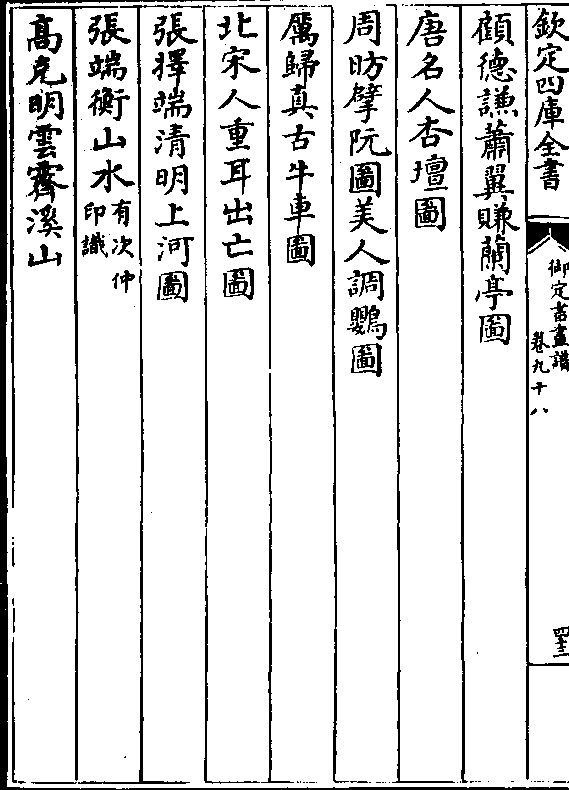 欽定四庫全書
御定書畫譜
卷九十八
顧德謙蕭翼賺蘭亭圖
唐名人杏壇圖
周昉擘阮圖美人調鸚圖
厲歸真古牛車圖
北宋人重耳出亡圖
張擇端清明上河圖
張端衡山水有次仲印識
高克明雲霽溪山